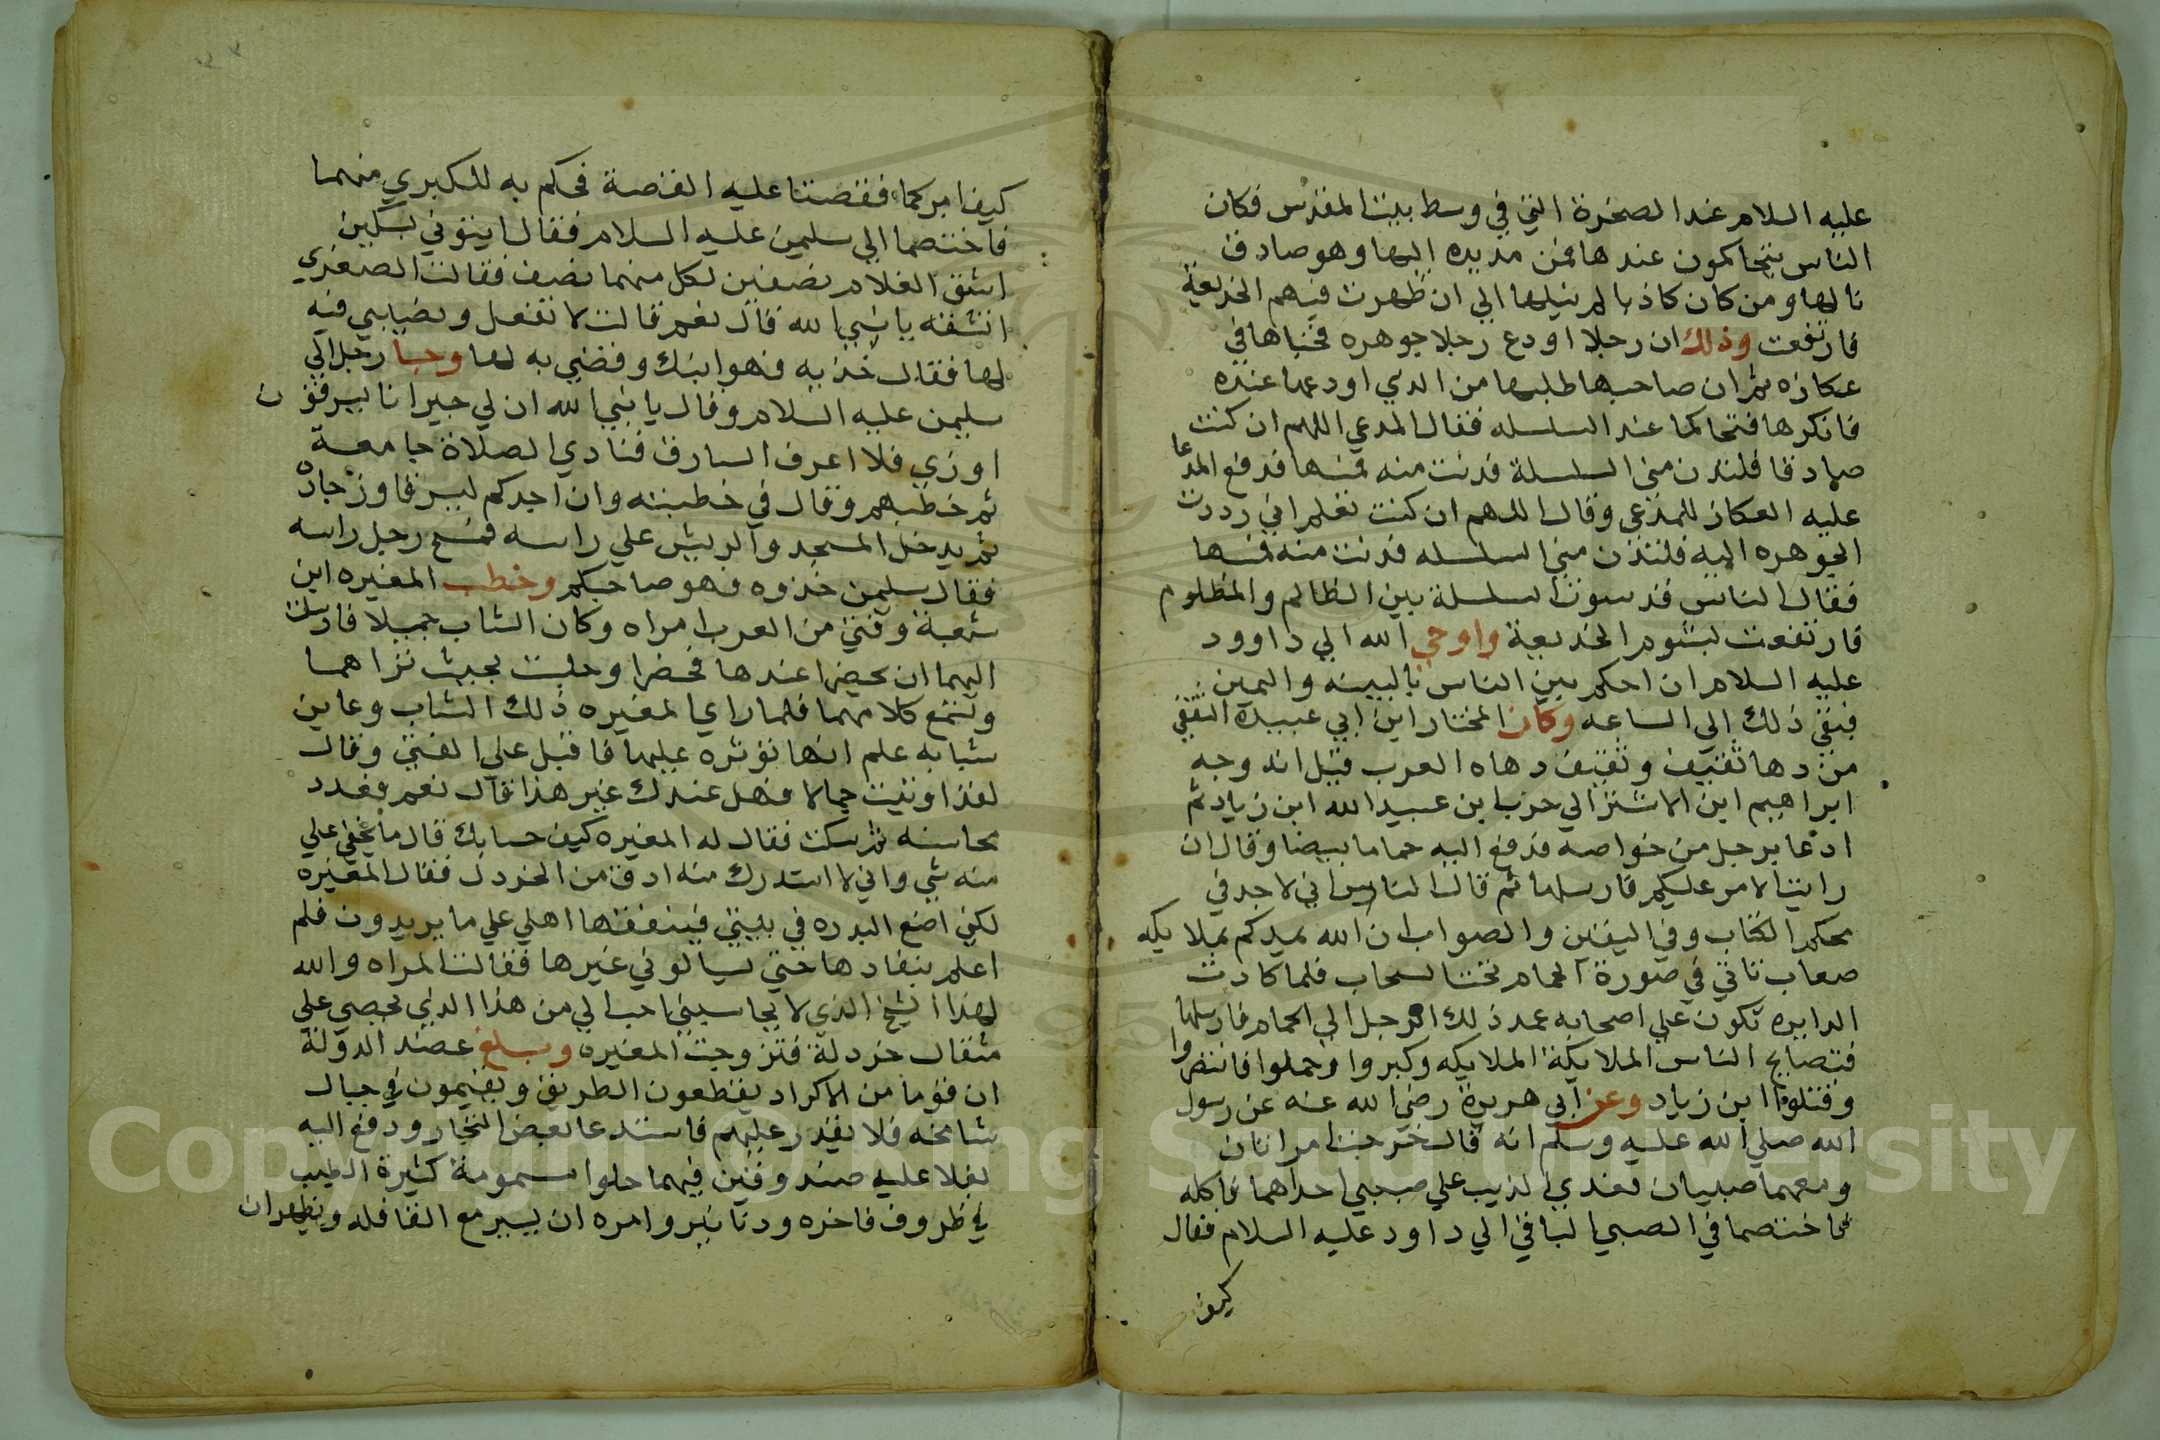 عليه السلام عند الصخرة التي في وسط بيت المقدس فكان
الناس يتحاكمون عندها فمن مد يده اليها وهو صادق
نالها ومن كان كاذبا لم ينلها الي ان ظهرت فيهم الخديعة
فارتفعت وذلك ان رجلا اودع رجلا جوهره فخباها في
عكازه ثم ان صاحبها طلبها من الذي اودعها عنده
فانكرها فتحاكما عند السلسله فقال المدعي اللهم ان كنت
صادقا فلتدن مني السلسلة فدنت منه فمسها فدفع المدعا
عليه العكاز للمدعي وقال اللهم ان كنت تعلم اني رددت
الجوهره اليه فلتدن مني السلسله فدنت منه فمسها
فقال الناس قد سوت السلسلة بين الظالم والمظلوم
فارتفعت بشوم الخديعة واوحي الله الي داوود
عليه السلام ان احكم بين الناس بالبينه واليمين
فبقي ذلك الي الساعه وكان المختار ابن ابي عبيدة الثقفي
من دهاة ثقيف وثقيف دهاه العرب قيل انه وجه
ابراهيم ابن الاشتر الي حرب بن عبيد الله ابن زياد ثم
ادعا برجل من خواصه فدفع اليه حماما بيضا وقال ان
رايت الامر عليكم فارسلها ثم قال للناس اني لاجد في
محكم الكتاب وفي اليقين والصواب ان الله يمدكم بملايكه
صعاب تاتي في صورة الحمام تحت السحاب فلما كادت
الدايره تكون علي اصحابه عمد ذلك الرجل الي الحمام فارسلها
فتصايح الناس الملايكة الملايكه وكبروا وحملوا فانتصروا
وقتلوا ابن زياد وعن ابي هريرة رضي الله عنه عن رسول
الله صلي الله عليه وسلم انه قال خرجت امراتان
ومعهما صبيان فعدي الذيب علي صبي احداهما فاكله
فاختصما في الصبي الباقي الي داود عليه السلام فقال
كيف
كيف امركما فقصتا عليه القصة فحكم به للكبري منهما
فاختصما الي سليمن عليه السلام فقال ايتوني بسكين
اشق الغلام نصفين لكل منهما نصف فقالت الصغري
اتشقه يا نبي الله قال نعم قالت لا تفعل ونصيبي فيه
لها فقال خذيه فهو ابنك وقضي به لها وجا رجل الي
سليمن عليه السلام وقال يا نبي الله ان لي جيرانا يسرقون
اوزي فلا اعرف السارق فنادي الصلاة جامعة
ثم خطبهم وقال في خطبته وان احدكم ليسرق اوز جاره
ثم يدخل المسجد والريش علي راسه فمسح رجل راسه
فقال سليمن خذوه فهو صاحبكم وخطب المغيره ابن
شعبة وفتي من العرب امراه وكان الشاب جميلا فارسلت
اليهما ان يحضرا عندها فحضرا وجلست بحيث تراهما
وتسمع كلامهما فلما راي المغيره ذلك الشاب وعاين
شبابه علم انها توثره عليها فاقبل علي الفتي وقال
لقد اوتيت جمالا فهل عندك غير هذا قال نعم فعدد
محاسنه ثم سكت فقال له المغيره كيف حسابك قال ما يخفي علي
منه شي واني لا استدرك منه ادق من الخردل فقال المغيره
لكني اضع البدره في بيتي فينفقها اهلي علي ما يريدون فلم
اعلم بنفادها حتي يسالوني غيرها فقالت المراه والله
لهذا الشيخ الذي لا يحاسبني احب الي من هذا الذي يحصي علي
مثقال خردلة فتزوجت المغيره وبلغ عضد الدولة
ان قوما من الاكراد يقطعون الطريق ويقيمون في جبال
شامخه فلا يقدر عليهم فاستدعا بعض التجار ودفع اليه
بغلا عليه صندوقين فيهما حلوا مسمومة كثيرة الطيب
في ظروف فاخره ودنانير وامره ان يسير مع القافله ويظهر ان
Copyright © King Saud University